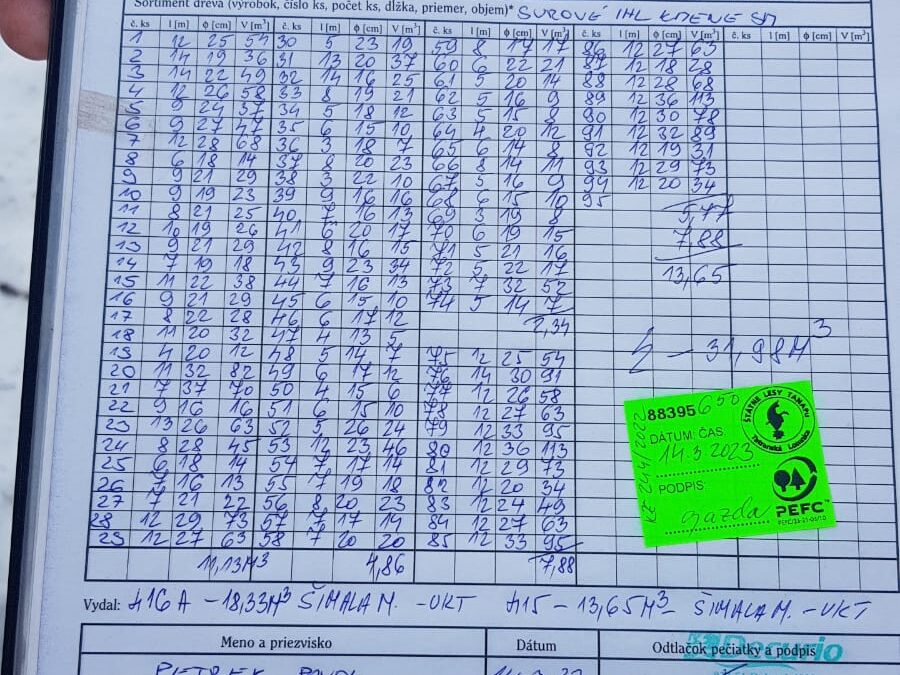 Sortiment dreva (výrobok, číslo ks, počet ks, dĺžka, priemer, objem)* SUROVÉ IHL KMENE SM
č. ks l [m] ϕ [cm] V [m³] č. ks l [m] ϕ [cm] V [m³] č. ks l [m] ϕ [cm] V [m³] č. ks l [m] ϕ [cm] V [m³] č. ks l [m] ϕ [cm] V [m³]
1 12 25 54 30 5 23 19 59 8 17 17 86 12 27 63
2 14 19 36 31 13 20 37 60 6 22 21 87 12 18 28
3 14 22 49 32 14 16 25 61 5 20 14 88 12 28 68
4 12 26 58 33 8 19 21 62 5 16 9 89 12 36 113
5 9 24 37 34 5 18 12 63 5 15 8 90 12 30 78
6 9 27 47 35 6 15 10 64 4 20 12 91 12 32 89
7 12 28 68 36 3 18 7 65 6 14 8 92 12 19 31
8 6 18 14 37 8 20 23 66 8 14 11 93 12 29 73
9 9 21 29 38 3 22 10 67 5 16 9 94 12 20 34
10 9 19 23 39 9 16 16 68 6 15 10 95
11 8 21 25 40 7 16 13 69 3 19 8 5,77
12 10 19 26 41 6 20 17 70 6 19 15 7,88
13 9 21 29 42 8 16 15 71 5 21 16
14 7 19 18 43 9 23 34 72 5 22 17 13,65
15 11 22 38 44 7 16 13 73 7 32 52
16 9 21 29 45 6 15 10 74 5 14 7
17 8 22 28 46 6 17 12 2,34
18 11 20 32 47 4 13 5
19 4 20 12 48 5 14 7 75 12 25 54
- 31,98M³
20 11 32 82 49 6 17 12 76 14 30 91
21 7 37 70 50 4 15 6 77 12 26 58
22 9 16 16 51 6 15 10 78 12 27 63
23 13 26 63 52 5 26 24 79 12 33 95
24 8 28 45 53 12 23 46 80 12 36 113
25 6 18 14 54 7 17 14 81 12 29 73
26 7 16 13 55 7 19 18 82 12 20 34
27 7 21 22 56 8 20 23 83 12 24 49
28 12 29 73 57 7 17 14 84 12 27 63
29 12 27 63 58 7 20 20 85 12 33 95
11,13M³ 4,86 7,88
88395 650
ŠTÁTNE LESY TANAPU
Tatranská Lomnica
DATUM: ČAS:
14.3.2023
PODPIS:
gazda
PEFC™
Vydal: 416A - 18,33M³ ŠIMALA M. - UKT 415 - 13,65M³ - ŠIMALA M. - UKT
Meno a priezvisko Dátum Odtlačok pečiatky a podpis
Decurio